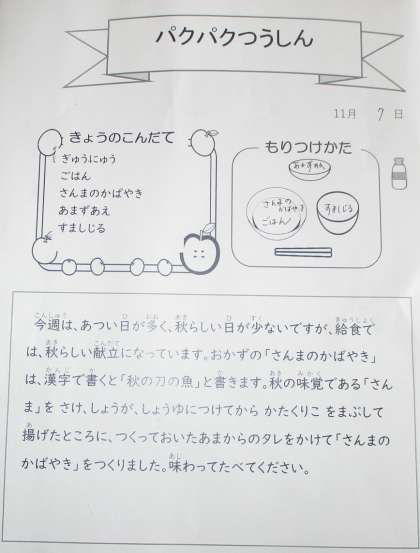 パクパクつうしん
11月 7 日
きょうのこんだて
ぎゅうにゅう
ごはん
さんまのかばやき
あまずあえ
すましじる
もりつけかた
あまずあえ
さんまの
かばやき
ごはん
すましじる
今週は、あつい日が多く、秋らしい日が少ないですが、給食で
は、秋らしい献立になっています。おかずの「さんまのかばやき」
は、漢字で書くと「秋の刀の魚」と書きます。秋の味覚である「さん
ま」を さけ、しょうが、しょうゆにつけてから かたくりこ をまぶして
揚げたところに、つくっておいたあまからのタレをかけて「さんまの
かばやき」をつくりました。味わってたべてください。